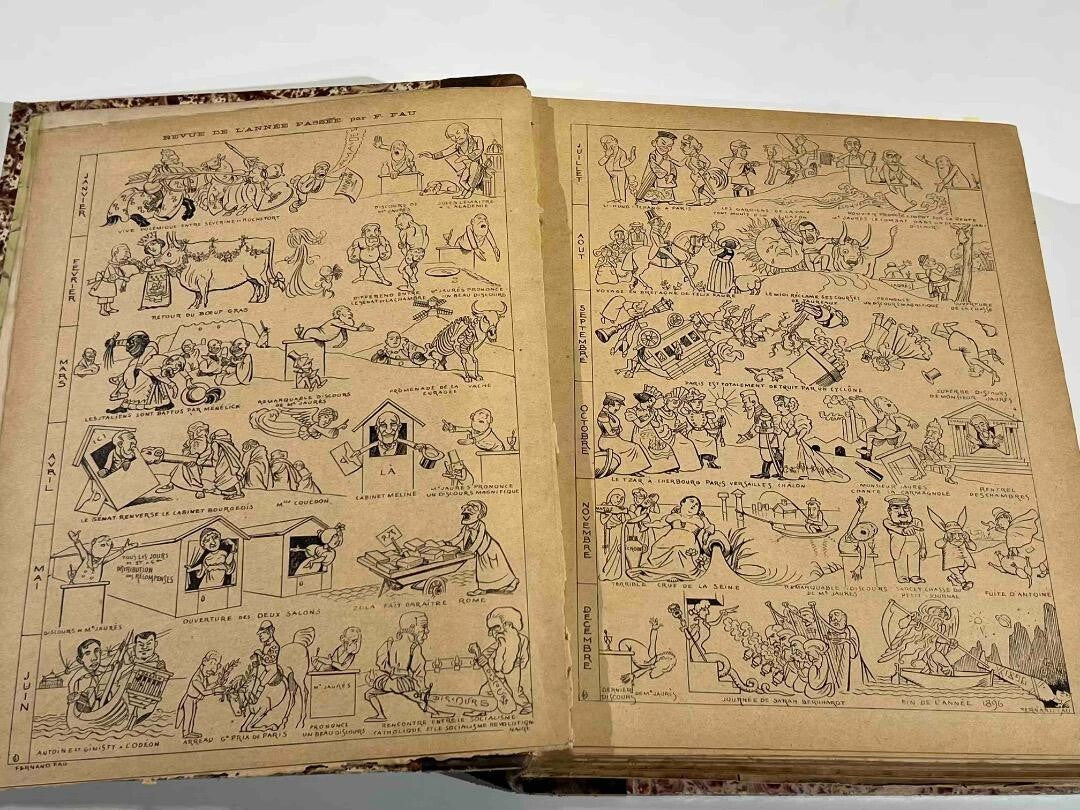 REVUE DE L'ANNÉE PASSÉE par F. FAU
JANVIER
VIVE POLÉMIQUE ENTRE SÉVERINE ET ROCHEFORT
DISCOURS DE
Mr JAURÈS
JULES LEMAITRE
A L'ACADÉMIE
FÉVRIER
RETOUR DU BŒUF GRAS
DIFFÉREND ENTRE
LE SÉNAT ET LA CHAMBRE
Mr JAURÈS PRONONCE
UN BEAU DISCOURS
MARS
LES ITALIENS SONT BATTUS PAR MÉNÉLICK
REMARQUABLE DISCOURS
DE Mr JAURÈS
PROMENADE DE LA VACHE
ENRAGÉE
AVRIL
LE SÉNAT RENVERSE LE CABINET BOURGEOIS
Mlle COUÉDON
LÀ
CABINET MÉLINE
Mr JAURÈS PRONONCE
UN DISCOURS MAGNIFIQUE
MAI
DISCOURS DE Mr JAURÈS
TOUS LES JOURS
DISTRIBUTION
DES RÉCOMPENSES
OUVERTURE DES DEUX SALONS
ZOLA FAIT PARAÎTRE ROME
JUIN
ANTOINE ET GINISTY A L'ODÉON
ARREAU Gd PRIX DE PARIS
Mr JAURÈS
PRONONCE
UN BEAU DISCOURS
DISCOURS
RENCONTRE ENTRE LE SOCIALISME
CATHOLIQUE ET LE SOCIALISME RÉVOLUTION
NAIRE
FERNAND FAU
JUILLET
LI-HUNG-TCHANG A PARIS
LES GARDIENS DE LA PAIX
SONT MUNIS D'UN BATON
AOUT
VOYAGE EN BRETAGNE DE FÉLIX FAURE
LE MIDI RÉCLAME SES COURSES
DE TAUREAUX
JAURÈS
PRONONCE
UN DISCOURS MAGNIFIQUE
OUVERTURE
DE LA CHASSE
SEPTEMBRE
PARIS EST TOTALEMENT DÉTRUIT PAR UN CYCLÔNE
SUPERBE DISCOURS
DE MONSIEUR JAURÈS
OCTOBRE
LE TZAR A CHERBOURG PARIS VERSAILLES CHALON
MONSIEUR JAURÈS
CHANTE LA CARMAGNOLE
RENTRÉE
DES CHAMBRES
NOVEMBRE
TERRIBLE CRUE DE LA SEINE
REMARQUABLE DISCOURS
DE Mr JAURÈS
PETIT JOURNAL
FUITE D'ANTOINE
DÉCEMBRE
DERNIER
DISCOURS DE Mr JAURÈS
JOURNÉE DE SARAH BERNHARDT
FIN DE L'ANNÉE 1896
FERNAND FAU